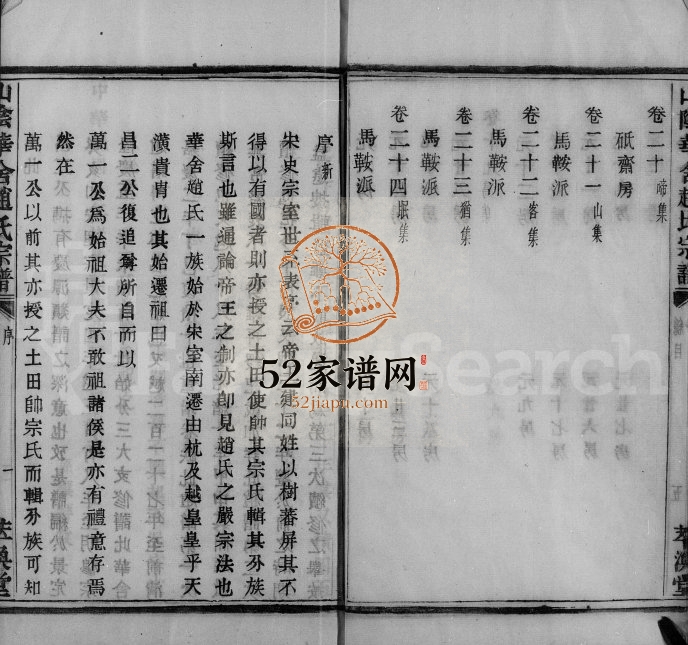 卷二十 啼集
祇齋房
卷二十一 山集
馬鞍派
卷二十二 客集
馬鞍派
卷二十三 猶集
馬鞍派
卷二十四 眠集
馬鞍派
山陰華舍趙氏宗譜
總目
五
萃渙堂
序 新
宋史宗室世
不表
云帝
建同姓以樹蕃屏其不
得以有國者則亦授之土田使帥其宗氏輯其分族
斯言也雖通論帝王之制亦卽見趙氏之嚴宗法也
華舍趙氏一族始於宋室南遷由杭及越皇皇乎天
潢貴胄也其始遷祖曰
昌二公復追尊所自而以
萬一公爲始祖大夫不敢祖諸侯是亦有禮意存焉
然在
萬一公以前其亦授之土田帥宗氏而輯分族可知
山陰華舍趙氏宗譜
序
一
萃渙堂
52家谱网
52jiapu.com
Search